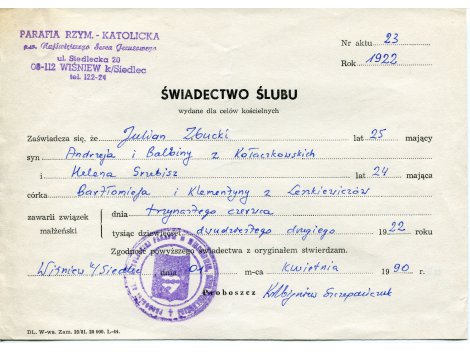 PARAFIA RZYM. - KATOLICKA
p.w. Najświętszego Serca Jezusowego
ul. Siedlecka 20
08-112 WIŚNIEW k/Siedlec
tel. 122-24
Nr aktu 23
Rok 1922
ŚWIADECTWO ŚLUBU
wydane dla celów kościelnych
Zaświadcza się, że Julian Zbucki lat 25 mający
syn Andrzeja i Balbiny z Kołaczkowskich
i Helena Srubisz lat 24 mająca
córka Bartłomieja i Klementyny z Lenkiewiczów
zawarli związek małżeński
dnia trzynastego czerwca
tysiąc dziewięćset dwudziestego drugiego 1922 roku
Zgodność powyższego świadectwa z oryginałem stwierdzam.
Wiśniew k/Siedlec dnia m-ca kwietnia 1990 r.
Proboszcz Szczepańczuk
DL. W-wa. Zam.